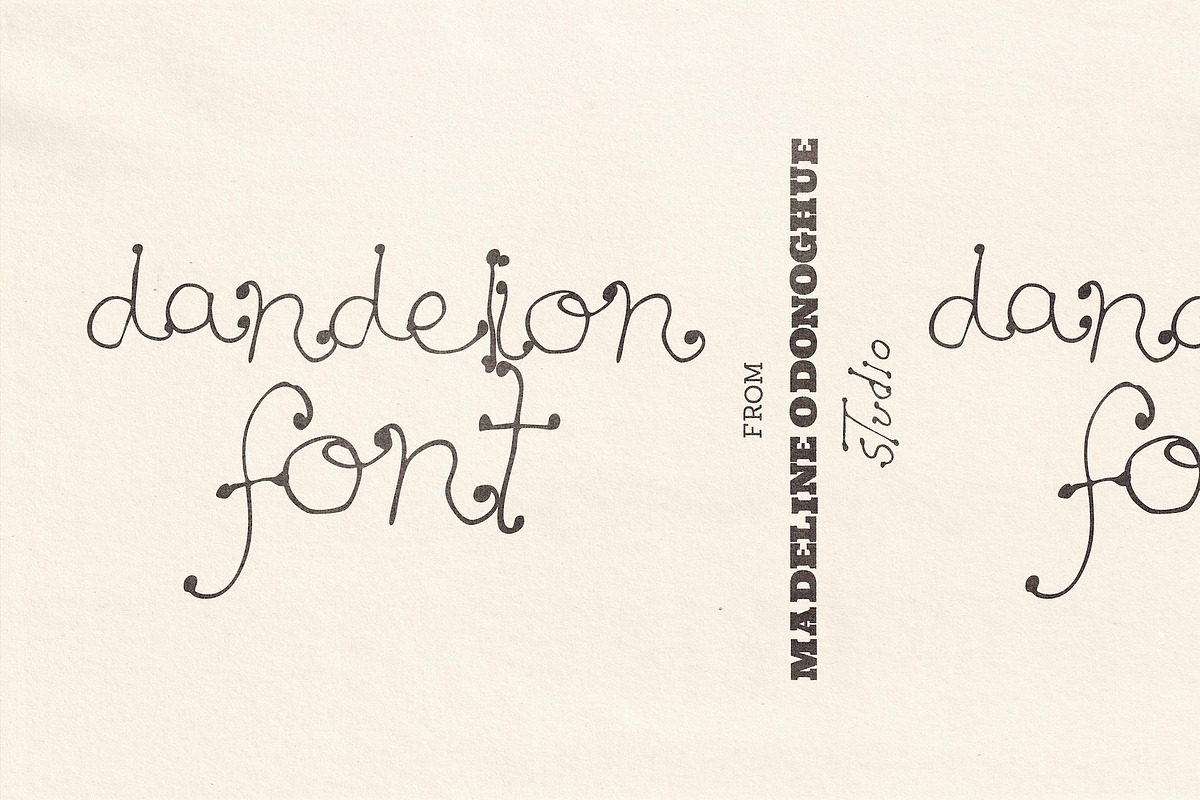 dandelion
font
FROM
MADELINE ODONOGHUE
STudio
dand
fo